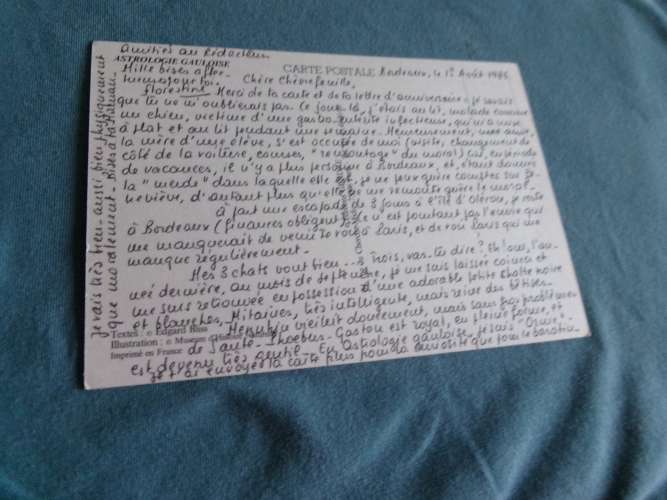 Amitiés au Rédacteur
ASTROLOGIE GAULOISE
CARTE POSTALE
Bordeaux, le 1er Août 1986
Mille bises
Chère Chèvrefeuille,
Florestine
Merci de ta carte et de ta lettre d'anniversaire : je savais
que tu ne m'oublierais pas. Ce jour-là, j'étais au lit, malade comme
un chien, victime d'une gastro-entérite infectieuse, qui m'a mise
à plat et au lit pendant une semaine. Heureusement, une amie,
la mère d'une élève, s'est occupée de moi (visite, changement de
côté de la voiture, courses, "remontage" du moral) car, en période
de vacances, il n'y a plus personne à Bordeaux, et, étant donnée
la "merde" dans laquelle elle est, je ne peux guère compter sur
Geneviève, d'autant plus qu'elle ne me remonte guère le moral.
à part une escapade de 3 jours à l'île d'Oléron, je reste
à Bordeaux (finances obligent). Ce n'est pourtant pas l'envie qui
me manquerait de venir te voir à Paris, et de voir Paris qui me
manque régulièrement.
Mes 3 chats vont bien... 3 mois, vas-tu dire? Eh! oui, l'an-
née dernière, au mois de septembre, je me suis laissée coincer et
me suis retrouvée en possession d'une adorable petite chatte noire
et blanche, Mitaines, très intelligente, mais reine des bêtises.
vieillit doucement, mais sans gros problèmes
de santé. Phoebus-Gaston est royal, en pleine forme, et
est devenu très gentil. En astrologie gauloise, je suis "Orme".
Je t'ai envoyé la carte plus pour la curiosité que pour le
je vais très bien - aussi bien physiquement
que moralement. Bises à
Textes : © Edgard Bliss
Illustration : © Muséum d'Histoire
Imprimé en France